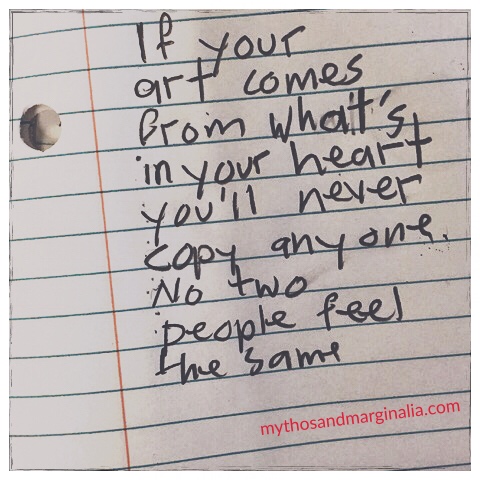 If your
art comes
from what's
in your heart
you'll never
copy anyone.
No two
people feel
the same
mythosandmarginalia.com